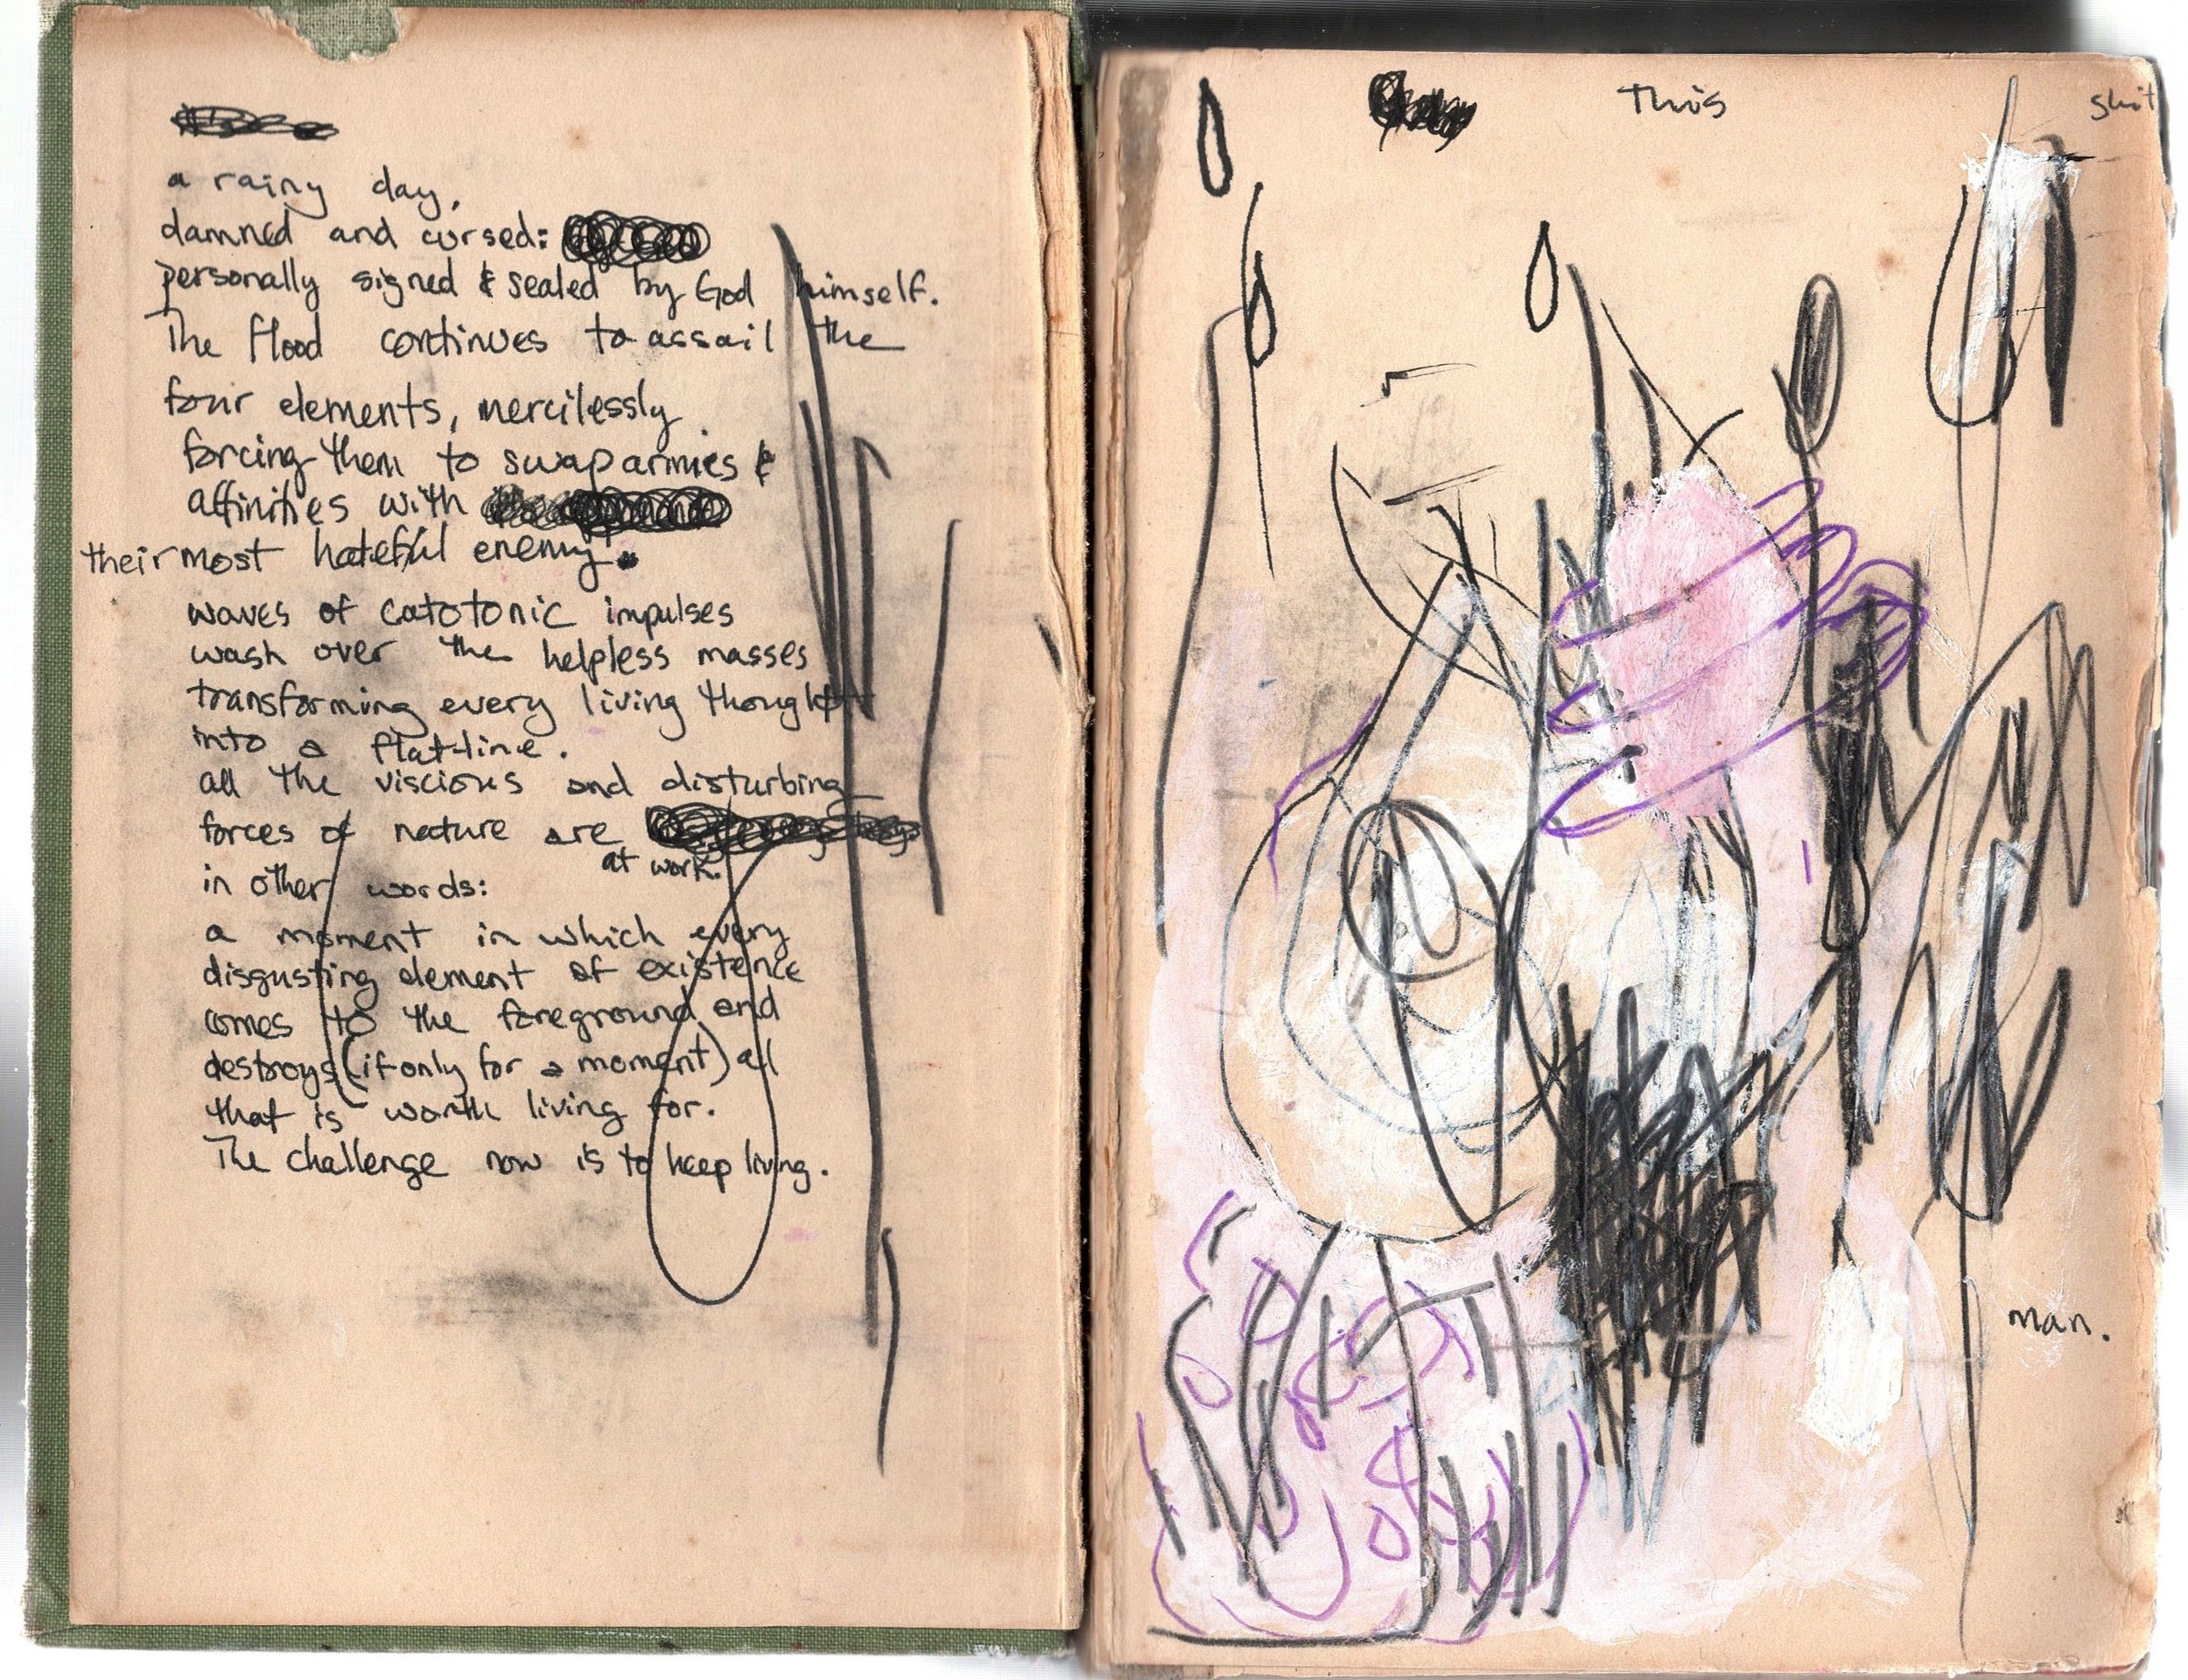 a rainy day,
damned and cursed:
personally signed & sealed by God himself.
The flood continues to assail the
four elements, mercilessly
forcing them to swap armies &
affinities with
their most hateful enemy.
waves of catotonic impulses
wash over the helpless masses
transforming every living thought
into a flat-line.
all the viscious and disturbing
forces of nature are
at work.
in other words:
a moment in which every
disgusting element of existence
comes to the foreground and
destroys (if only for a moment) all
that is worth living for.
The challenge now is to keep living.
This shit
man.